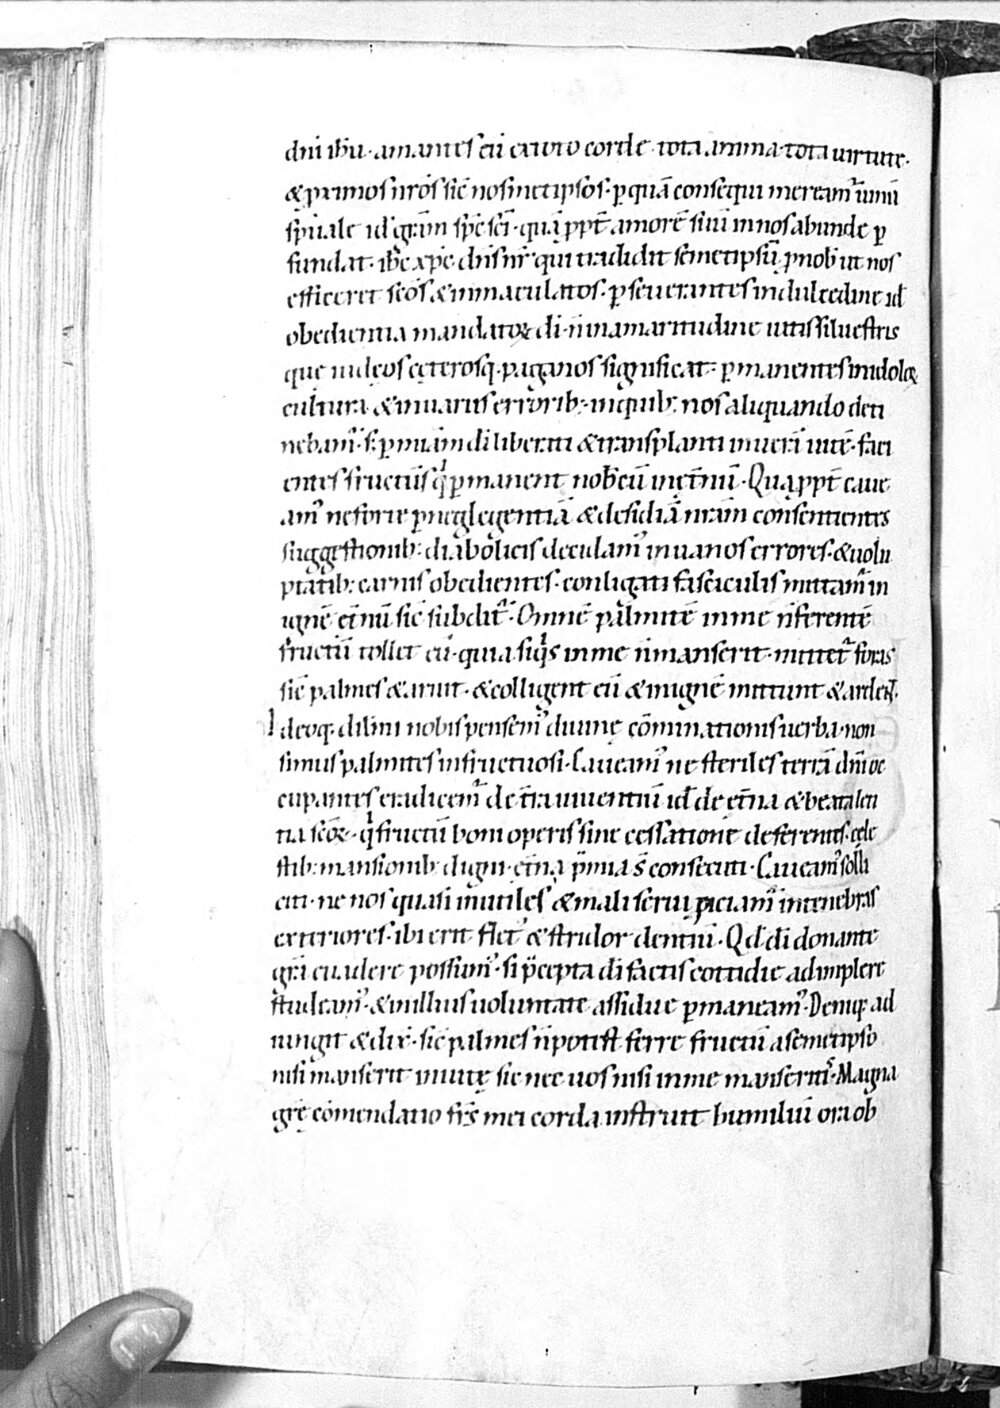 dn̄i ih̄u · amantes eū ex toto corde · tota anima · tota uirtute ·
& ꝓximos nr̄os sic̄ nosmetipsos · ꝑ quā consequi mereamᷣ uinū
sp̄uale id ÷ gr̄am sp̄c sc̄i · quā ꝓpt̄ amorē suū in nos abunde ꝑ
fundat · ih̄c xp̄c dn̄s nr̄ · qui tradidit semetipsū ꝓ nob̄ ut nos
efficeret sc̄os & inmaculatos · ꝑseuerantes in dulcedine id ÷
obedientia mandatoꝝ di · n̄ in amaritudine uitis siluestris
quę iudeos cęterosq; paganos significat · ꝑmanentes in idoloꝝ
cultura · & in uariis errorib; · in quib; nos aliquando deti
nebamᷣ · s; ꝑ miām di liberati & transplanti in uerā uitē · faci
entes fructūs q̄ ꝑmanent nobcū in ęt̄nū · Qua ꝓpt̄ caue
am᾽ ne forte ꝑ neglegentiā & desidiā nr̄am consentientes
suggestionib; diabolicis decidam᾽ in uanos errores · & uolu
ptatib; carnis obedientes · conligati fasciculis mittamᷣ in
ignē et̄nū sic̄ subditᷣ · Omnē palmitē in me n̄ ferentē
fructū tollet eū · quia siq̄s in me n̄ manserit · mittetᷣ foras
sic̄ palmes & aruit · & colligent eū & in ignē mittunt & ardet ·
Ideoq; dil̄mi nobis pensem᾽ diuinę cōminationis uerba · non
simus palmites infructuosi · Caueam᾽ ne steriles terrā dn̄i oc
cupantes eradicemᷣ de t̄ra uiuentiū id ÷ de et̄na & beata len
tia sc̄oꝝ · q̄ fructū boni operis sine cessatione deferentes · cęle
stib; mansionib; digni · et̄na p̄mia s̄ consecuti · Caueam᾽ solli
citi · ne nos quasi inutiles & mali serui ꝓiciamᷣ in tenebras
exteriores · ibi erit flet᾽ & stridor dentiū · Qd̄ di donante
gr̄a euadere possum᾽ · si p̄cepta di factis cottidie adimplere
studeam᾽ · & in illius uoluntate assidue ꝑmaneam᾽ · Deniq; ad
iungit & dix̄ · sic̄ palmes n̄ potest ferre fructū a semetipso
nisi manserit in uitę sic nec uos nisi in me manseritis · Magna
gr̄ę cōmendatio fr̄s mei corda instruit humiliū ora ob